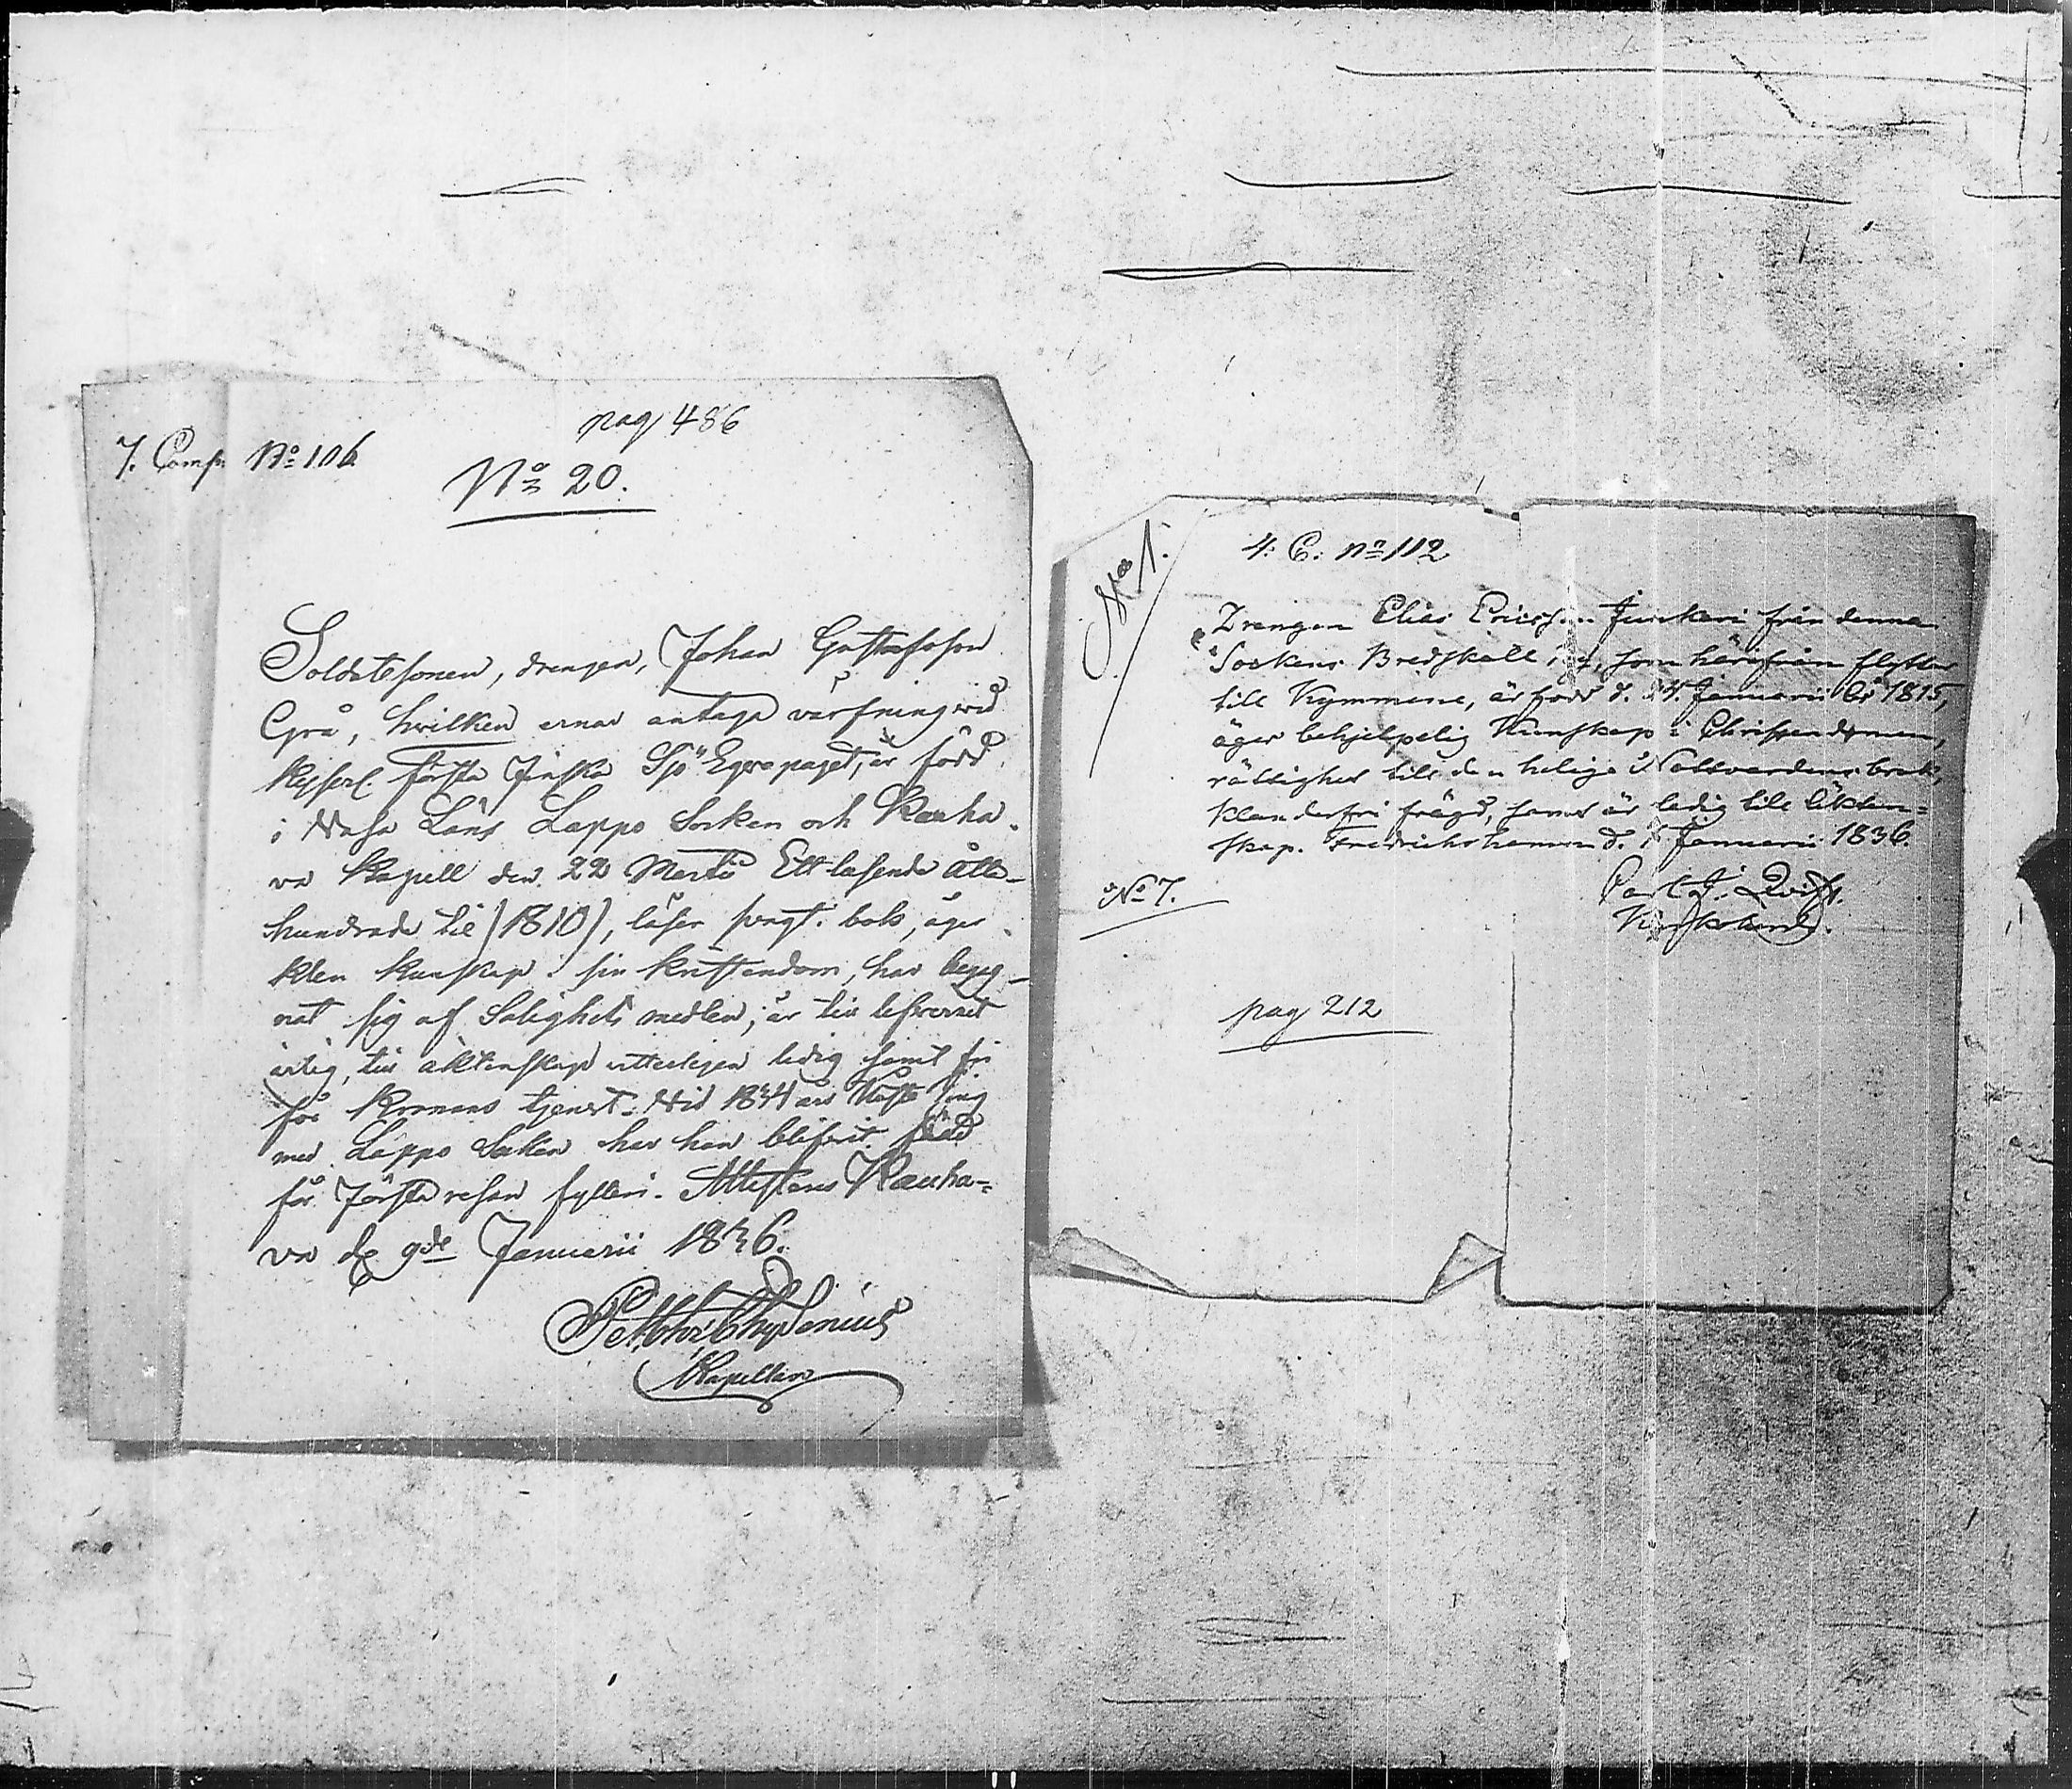 pag 486
7. Comp. No 106
No 20.
Soldatesonen, drengen, Johan Gustafsson
Grå, hvilken ernar antaga värfning vid
Kejserl. första Finska Sjö Eqvipaget, är född
i Wasa Läns Lappo Socken och Kauha-
va Kapell den 22 Martii Ett tusende Åtta-
hundrade tie (1810), läser bok, äger
klen kunskap i sin kristendom, har begag-
nat sig af Salighets medlen; är till lefvernet
ärlig, till äktenskap ytterligen ledig samt fri
för Kronans tjenst. Vid 1834 års Höste ting
med Lappo Socken har han blifvit fäld
för första resan fylleri. Attesteras Kauha-
va d. 9de Januarii 1836.
Chydenius
Kapellan
No 1.
4: C. no 112
Drengen Elias Ericsson Junkari från denna
Sockens Bredskall by, som härifrån flyttar
till Kymmene, är född d. 24 Januarii år 1815,
äger behjelpelig Kunskap i Christendomen,
rättighet till den heliga Nattvardens bruk,
klanderfri frägd, samt är ledig till äkten-
skap. Fredrichshamn d. Januarii 1836.
Carl J. Qvist.
No 7.
pag 212